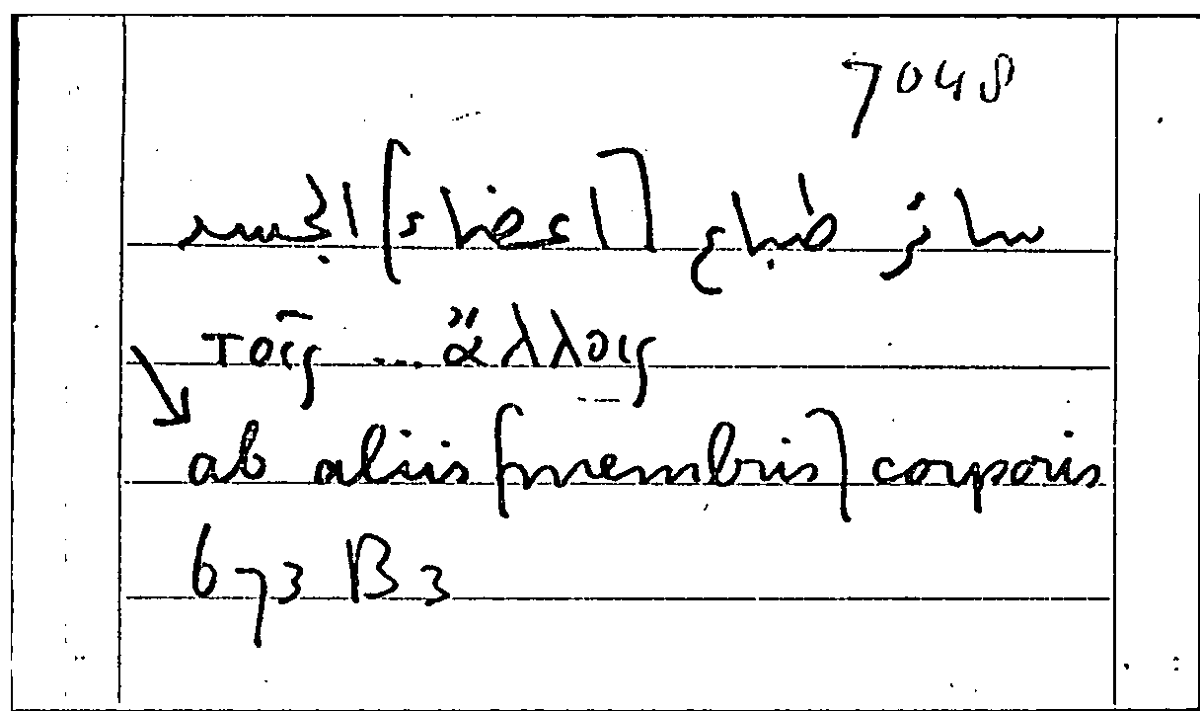 7048
سائر طباع [اعضاء] الجسد
τοῖς ... ἄλλοις
ab aliis [membris] corporis
673 B 3